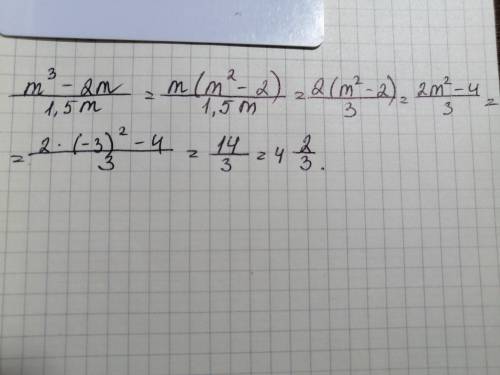 (m³ − 2m)/(1,5m) = (m(m² − 2))/(1,5m) = (2(m² − 2))/3 = (2m² − 4)/3 =
= (2 · (−3)² − 4)/3 = 14/3 = 4 2/3.